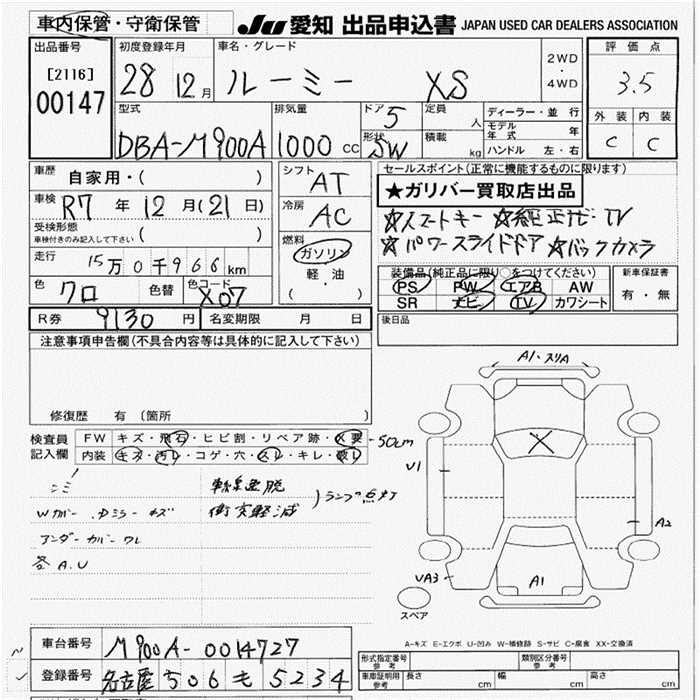 車内保管・守衛保管
JU 愛知 出品申込書 JAPAN USED CAR DEALERS ASSOCIATION
出品番号 [2116] 00147
初度登録年月 28 12月
車名・グレード ルーミー XS
2WD・4WD
評価点 3.5
外装 C 内装 C
型式 DBA-M900A
排気量 1000 cc
ドア 5
形状 5W
定員 人
積載 kg
ディーラー・並行
モデル年式 年
ハンドル 左・右
車歴 自家用・( )
車検 R7 年 12 月(21 日)
受検形態 車検付きのみ記入して下さい ( )
走行 15万0千966km
色 クロ 色替 色コード X07
シフト AT
冷房 AC
燃料 ガソリン 軽・油 ( )
セールスポイント(正常に機能するものに限ります)
★ガリバー買取店出品
☆スマートキー ☆純正ナビ・TV
☆パワースライドドア ☆バックカメラ
装備品(純正品に限り○をつけてください)
PS PW エアB AW
SR ナビ TV カワシート
新車保証書 有・無
R券 9130 円 名変期限 月 日
後日品
注意事項申告欄(不具合内容等は具体的に記入して下さい)
修復歴 有(箇所 )
検査員記入欄
FW キズ・飛石・ヒビ割・リペア跡・X要 -50cm
内装 キズ・汚レ・コゲ・穴・スレ・キレ・破レ
シミ
Wカバー .Dミラーキズ
アンダーカバーワレ
各A.U
軌道逸脱
衝突軽減
)ランプの点灯
A1・スリA
X
U1
A2
UA3
A1
スペア
A-キズ E-エクボ U-凹み W-補修跡 S-サビ C-腐食 XX-交換済
車台番号 M900A-0014727
登録番号 名古屋506も5234
型式指定番号 参考
類別区分番号 参考
車庫証明用 参考 長さ cm 幅 cm 高さ cm